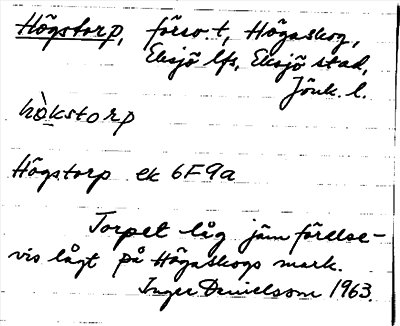 Högstorp, försv. t, Högaskog,
Eksjö lfs, Eksjö stad,
Jönk. l.
hòkstorp
Högstorp ek 6F9a
Torpet låg jämförelse-
vis lågt på Högaskogs mark.
Inger Danielsson 1963.